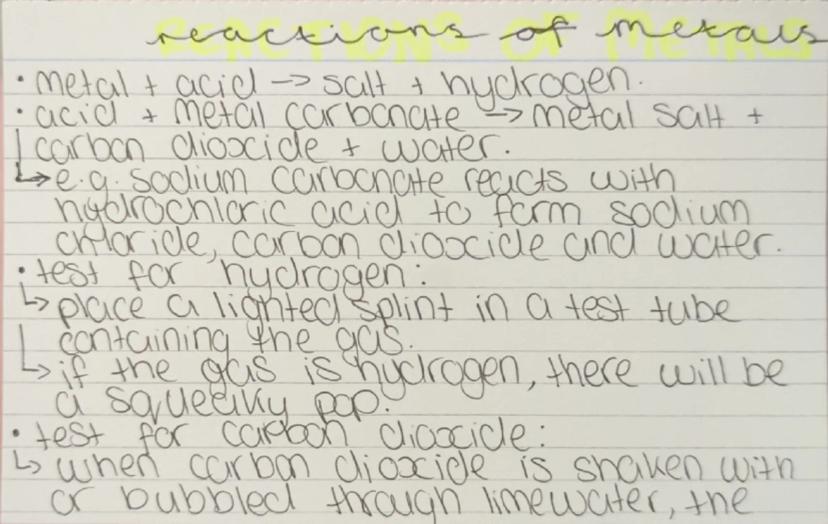 reactions of metals
• metal + acid → salt + hydrogen.
• acid + metal carbonate → metal salt +
carbon dioxide + water.
↳ e.g. sodium carbonate reacts with
hydrochloric acid to form sodium
chloride, carbon dioxide and water.
• test for hydrogen:
↳ place a lighted splint in a test tube
containing the gas.
↳ if the gas is hydrogen, there will be
a squeaky pop.
• test for carbon dioxide:
↳ when carbon dioxide is shaken with
or bubbled through limewater, the